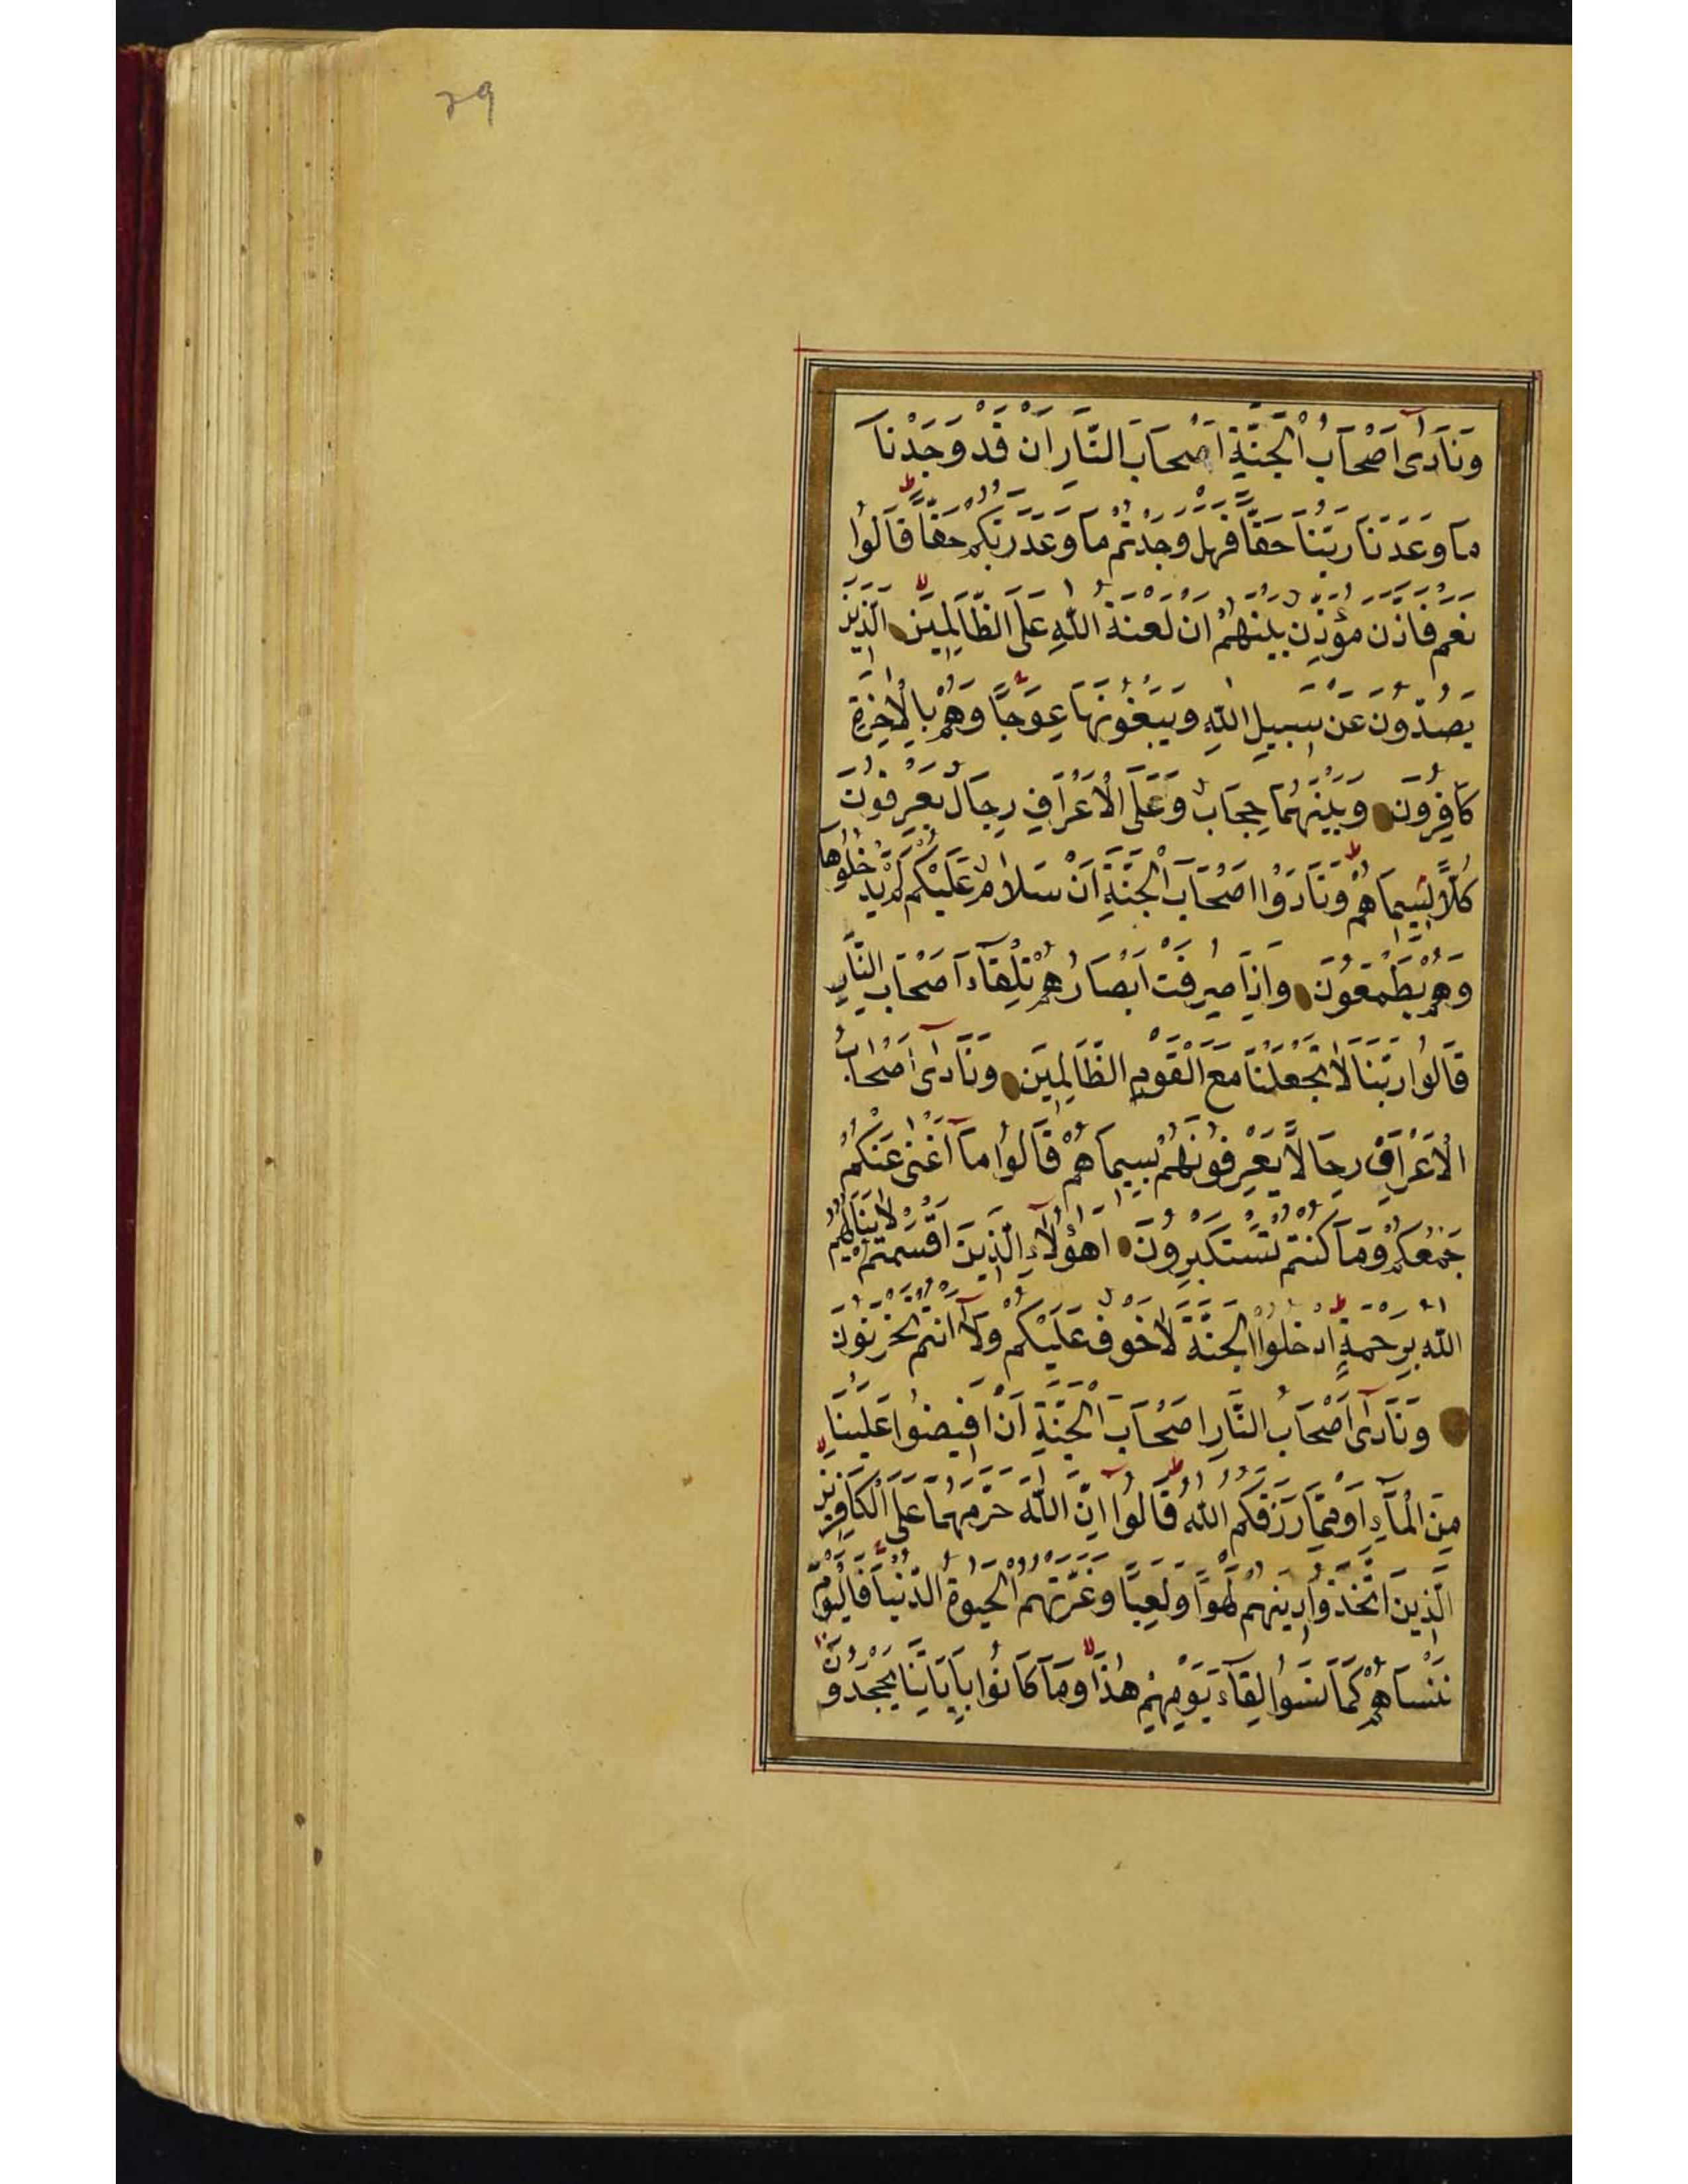 ٢٩
وَنَادٰٓى اَصْحَابُ الْجَنَّةِ اَصْحَابَ النَّارِ اَنْ قَدْ وَجَدْنَا
مَا وَعَدَنَا رَبُّنَا حَقًّا فَهَلْ وَجَدْتُمْ مَا وَعَدَ رَبُّكُمْ حَقًّا ط قَالُوا
نَعَمْ فَاَذَّنَ مُؤَذِّنٌ بَيْنَهُمْ اَنْ لَعْنَةُ اللّٰهِ عَلَى الظَّالِمِينَ لا اَلَّذِينَ
يَصُدُّونَ عَنْ سَبِيلِ اللّٰهِ وَيَبْغُونَهَا عِوَجًا وَهُمْ بِالْاٰخِرَةِ
كَافِرُونَ وَبَيْنَهُمَا حِجَابٌ وَعَلَى الْاَعْرَافِ رِجَالٌ يَعْرِفُونَ
كُلًّا بِسِيمَاهُمْ ط وَنَادَوْا اَصْحَابَ الْجَنَّةِ اَنْ سَلَامٌ عَلَيْكُمْ لَمْ يَدْخُلُوهَا
وَهُمْ يَطْمَعُونَ وَاِذَا صُرِفَتْ اَبْصَارُهُمْ تِلْقَآءَ اَصْحَابِ النَّارِ
قَالُوا رَبَّنَا لَا تَجْعَلْنَا مَعَ الْقَوْمِ الظَّالِمِينَ وَنَادٰٓى اَصْحَابُ
الْاَعْرَافِ رِجَالًا يَعْرِفُونَهُمْ بِسِيمَاهُمْ قَالُوا مَآ اَغْنٰى عَنْكُمْ
جَمْعُكُمْ وَمَا كُنْتُمْ تَسْتَكْبِرُونَ اَهٰٓؤُلَآءِ الَّذِينَ اَقْسَمْتُمْ لَا يَنَالُهُمُ
اللّٰهُ بِرَحْمَةٍ ط اُدْخُلُوا الْجَنَّةَ لَا خَوْفٌ عَلَيْكُمْ وَلَآ اَنْتُمْ تَحْزَنُونَ
وَنَادٰٓى اَصْحَابُ النَّارِ اَصْحَابَ الْجَنَّةِ اَنْ اَفِيضُوا عَلَيْنَا
مِنَ الْمَآءِ اَوْ مِمَّا رَزَقَكُمُ اللّٰهُ ط قَالُوٓا اِنَّ اللّٰهَ حَرَّمَهُمَا عَلَى الْكَافِرِينَ لا
الَّذِينَ اتَّخَذُوا دِينَهُمْ لَهْوًا وَلَعِبًا وَغَرَّتْهُمُ الْحَيٰوةُ الدُّنْيَا فَالْيَوْمَ
نَنْسَاهُمْ كَمَا نَسُوا لِقَآءَ يَوْمِهِمْ هٰذَا لا وَمَا كَانُوا بِاٰيَاتِنَا يَجْحَدُونَ